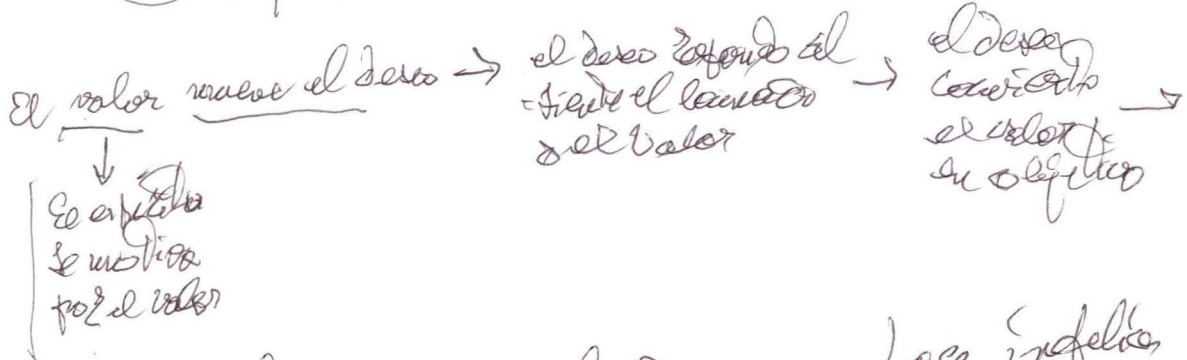 El valor mueve el deseo →
el deseo responde al
siente el llamado
del valor
→ el deseo
convierte
el valor
en objetivo →
↓
El espíritu
se motiva
por el valor